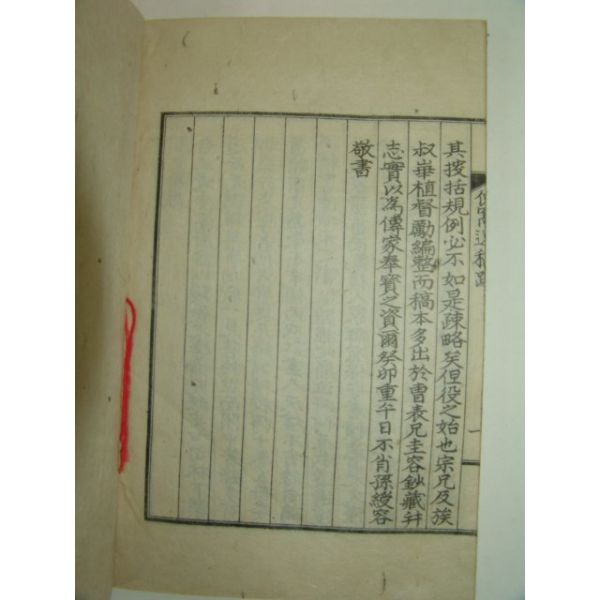 其按括規例必不如是疎略矣但役之始也宗兄及族
叔崋植督勵編整而稿本多出於曺表兄圭容鈔藏幷
志實以爲傳家奉寶之資爾癸卯重午日不肖孫綬容
敬書